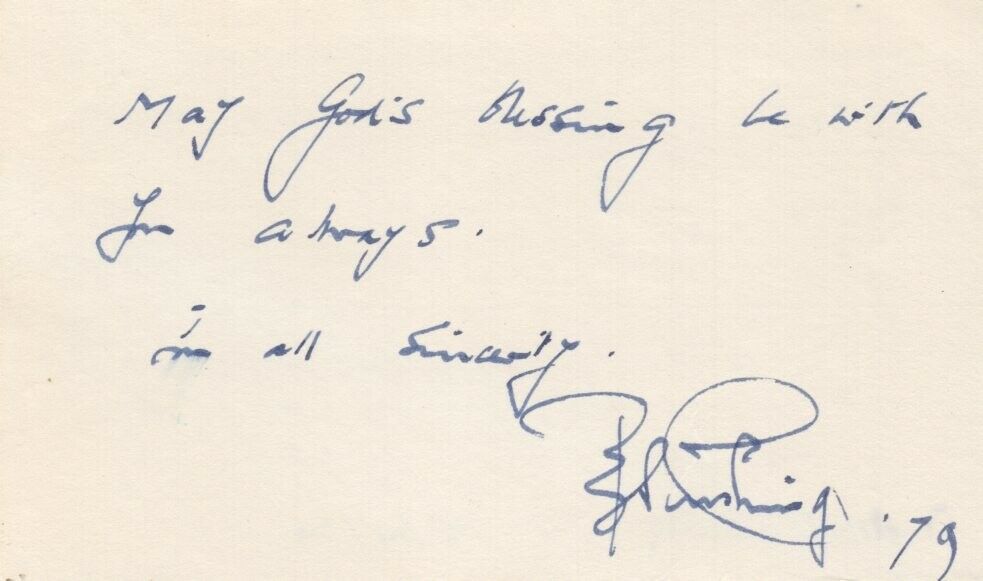 May God's blessing be with
you always.
in all sincerity.
Cushing '79